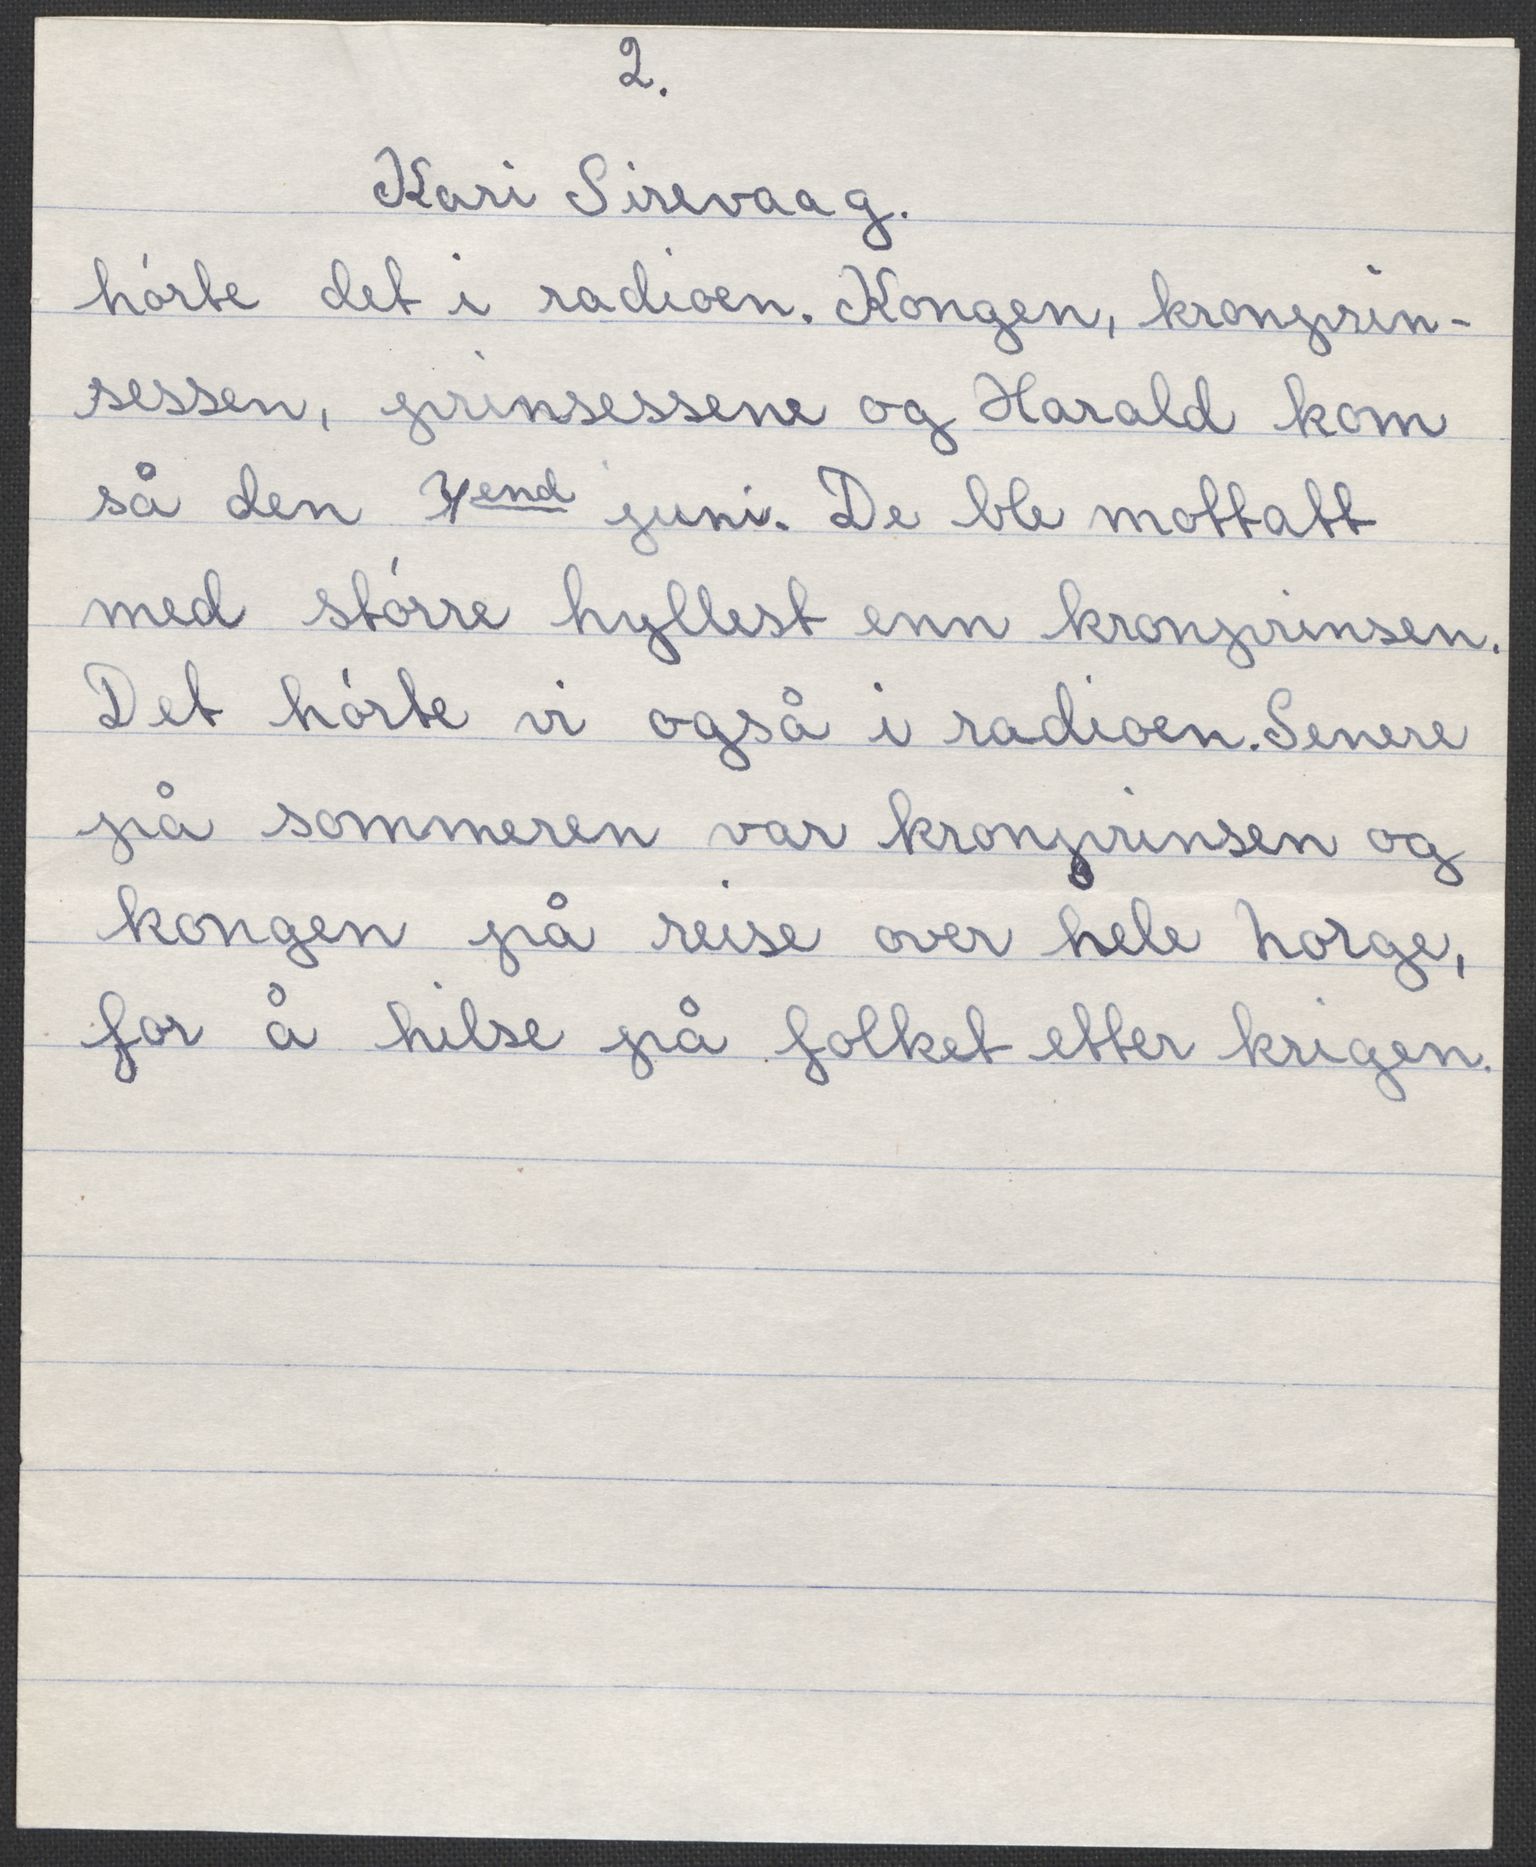 2.
Kari Sirevaag.
hórte det i radioen. Kongen, kronprin-
sessen, prinsessene og Harald kom
så den 7end juni. De ble mottatt
med stórre hyllest enn kronprinsen.
Det hórte vi også i radioen. Senere
på sommeren var kronprinsen og
kongen på reise over hele Norge,
for å hilse på folket etter krigen.